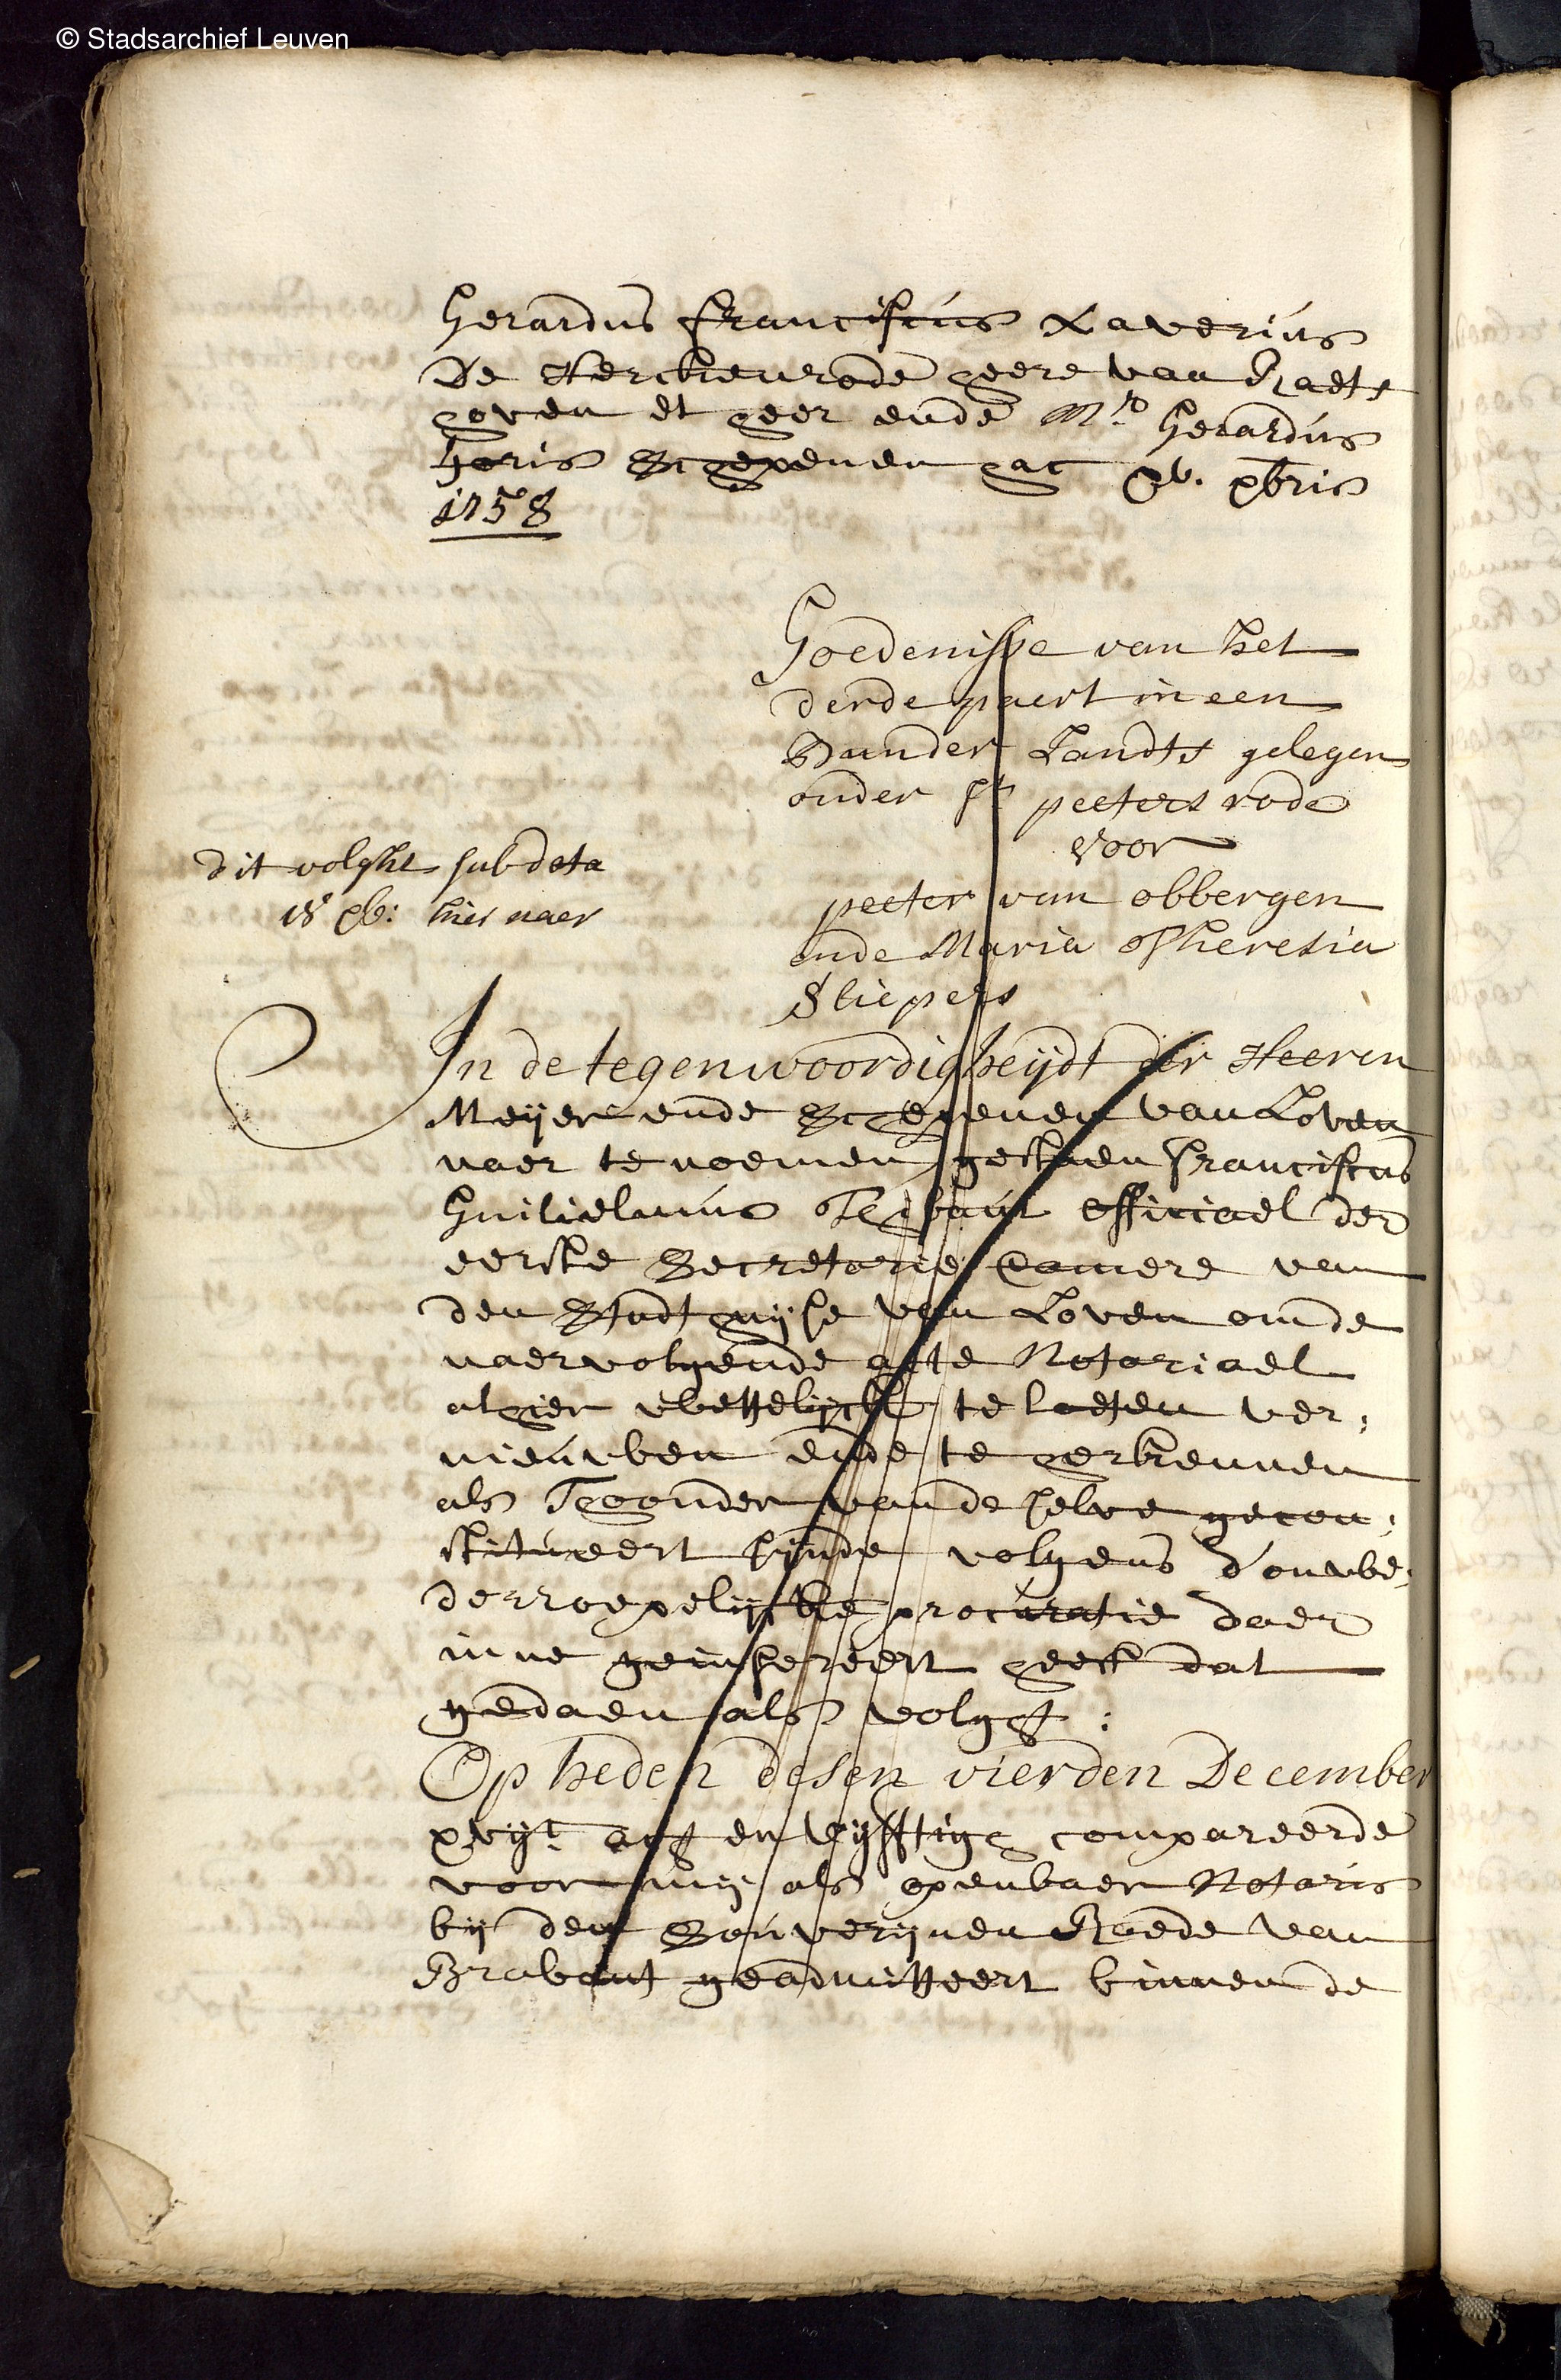 © Stadsarchief Leuven
Gerardus Franciscus Xaverius
De Herckenrode heere van Raets
hoven et heer ende Mr. Gerardus
Goris Schepenen hac 9bris
1758
Goedenisse van het
derde paert in een
Bunder Landts gelegen
onder St peeters rode
voor
peeter van obbergen
ende Maria Theresia
Sliepers
dit volght sub data
18 xb: hier naer
In de tegenwoordigheijdt der Heeren
Meijer ende Schepenen van Loven
naer te noemen gestaen Franciscus
Guilielmus officiael der
eerste Secretarije Camere van
den Stadt huijse van Loven om de
naervolgende acte Notariael
alhier wettelijck te laeten ver;
nieuwen ende te herkennen
als Thoonder van de selve gecon;
stitueert sijnde volgens d'onwe;
derroepelijcke procuratie daer
inne geinsereert heeft dat
gedaen als volght:
Op heden desen vierden December
xvijc acht en vijfftigh compareerde
voor mij als openbaer Notaris
bij den Souverijnen Raede van
Brabant geadmitteert binnen de